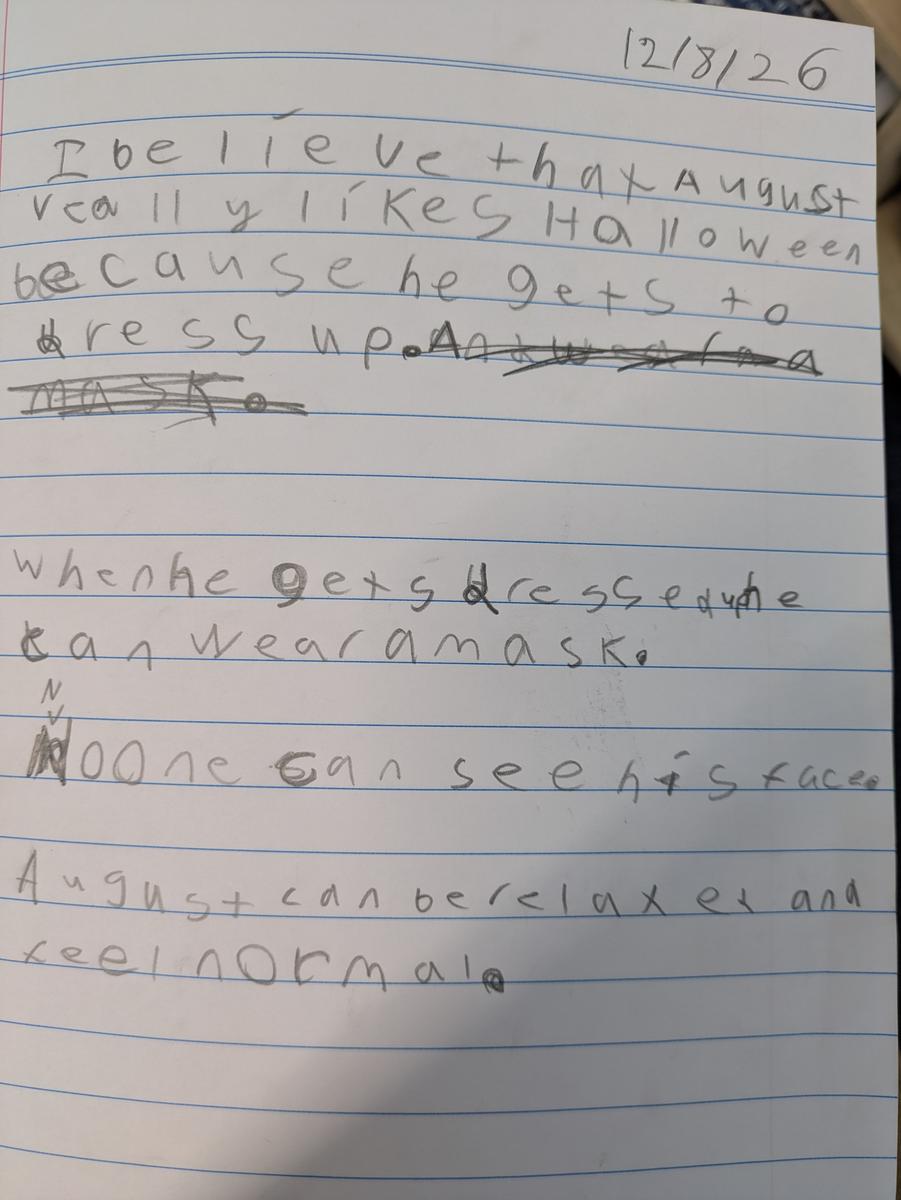 12/8/26
I believe that August
really likes Halloween
because he gets to
dress up. An
mask.
When he gets dressed up he
can wear a mask.
N
No One can see his face.
August can be relaxet and
feel normal.